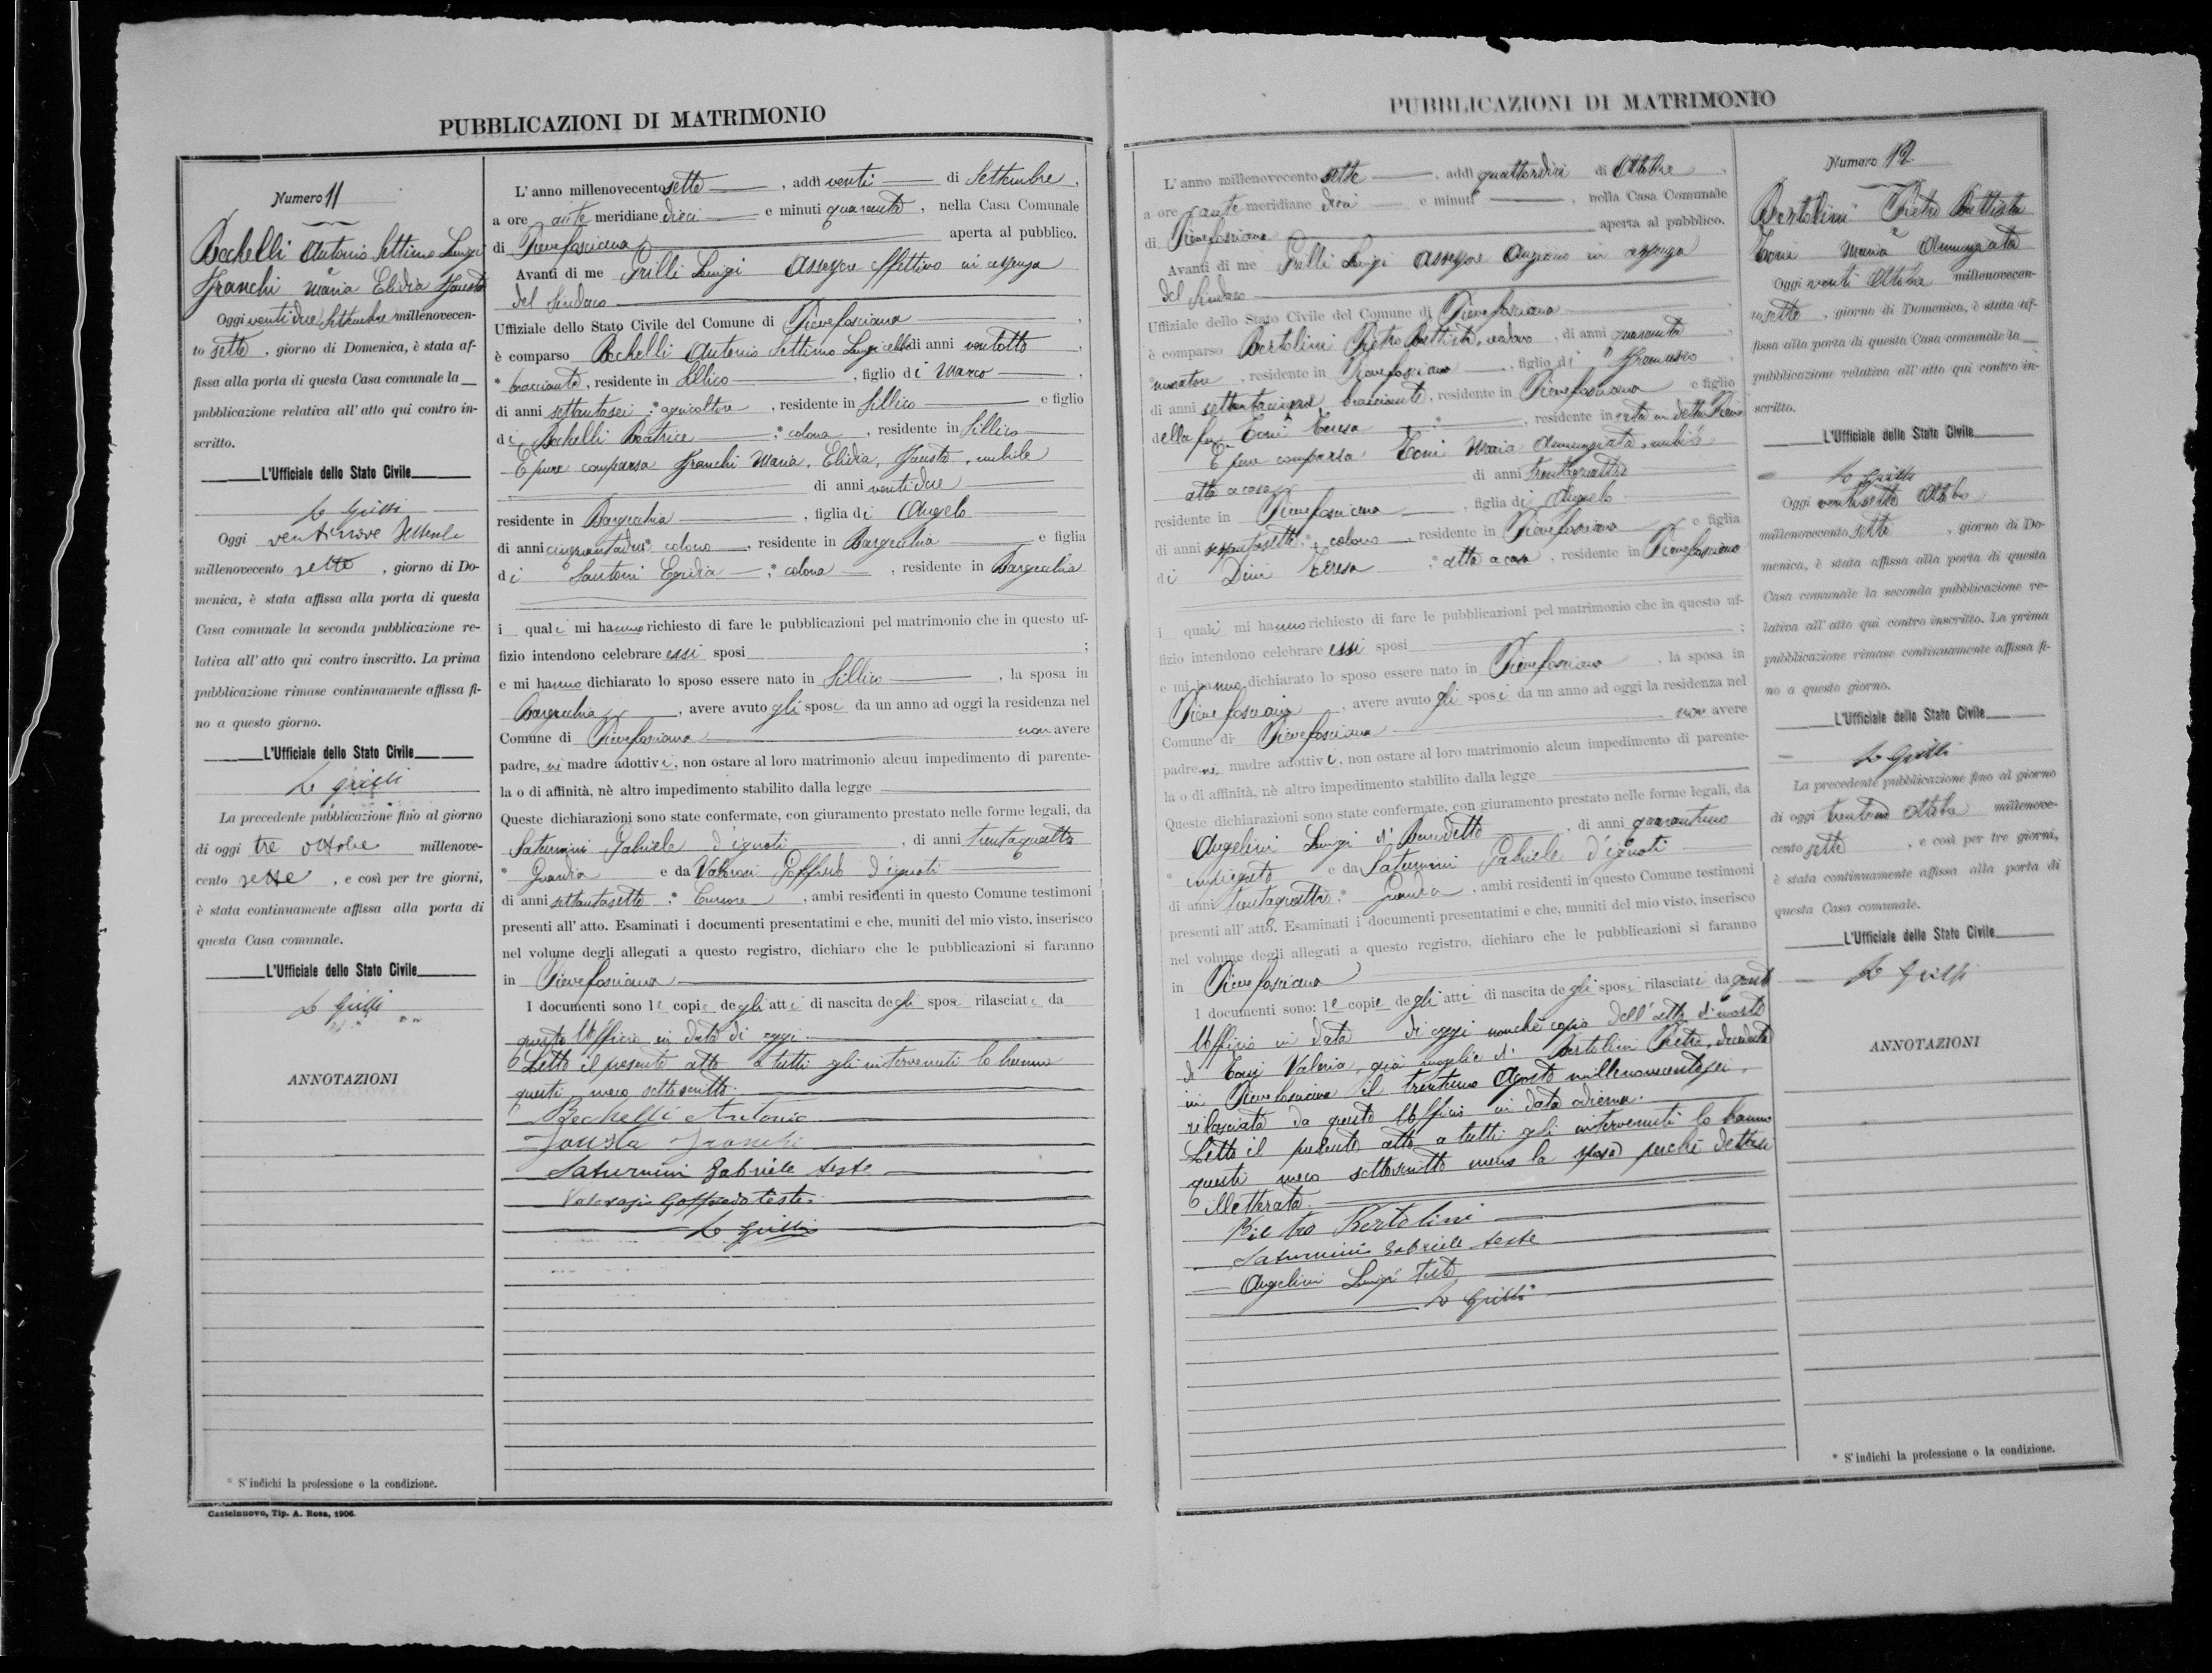 PUBBLICAZIONI DI MATRIMONIO
Numero 11
Bechelli Antonio Settimo Luigi
e
Franchi Maria Elidia Fausta
Oggi ventidue Settembre millenovecen-
to sette, giorno di Domenica, è stata af-
fissa alla porta di questa Casa comunale la
pubblicazione relativa all'atto qui contro in-
scritto.
L'Ufficiale dello Stato Civile
L Grilli
Oggi ventinove Settembre
millenovecento sette, giorno di Do-
menica, è stata affissa alla porta di questa
Casa comunale la seconda pubblicazione re-
lativa all'atto qui contro inscritto. La prima
pubblicazione rimase continuamente affissa fi-
no a questo giorno.
L'Ufficiale dello Stato Civile
L Grilli
La precedente pubblicazione fino al giorno
di oggi tre ottobre millenove-
cento sette, e così per tre giorni,
è stata continuamente affissa alla porta di
questa Casa comunale.
L'Ufficiale dello Stato Civile
L Grilli
ANNOTAZIONI
* S'indichi la professione o la condizione.
Castelnuovo, Tip. A. Rosa, 1906.
L'anno millenovecento sette, addì venti di Settembre,
a ore ante meridiane dieci e minuti quaranta, nella Casa Comunale
di Pievefosciana aperta al pubblico.
Avanti di me Grilli Luigi Assessore effettivo in assenza
del Sindaco
Uffiziale dello Stato Civile del Comune di Pievefosciana,
è comparso Bechelli Antonio Settimo Luigi celibe di anni ventotto,
* bracciante, residente in Sillico, figlio di Marco,
di anni settantasei,* agricoltore, residente in Sillico e figlio
di Bechelli Beatrice,* colona, residente in Sillico
È pure comparsa Franchi Maria, Elidia, Fausta, nubile
di anni ventidue
residente in Bargecchia, figlia di Angelo
di anni cinquantadue* colono, residente in Bargecchia e figlia
di Santoni Egidia,* colona, residente in Bargecchia
i quali mi hanno richiesto di fare le pubblicazioni pel matrimonio che in questo uf-
fizio intendono celebrare essi sposi;
e mi hanno dichiarato lo sposo essere nato in Sillico, la sposa in
Bargecchia, avere avuto gli sposi da un anno ad oggi la residenza nel
Comune di Pievefosciana non avere
padre, nè madre adottivi, non ostare al loro matrimonio alcun impedimento di parente-
la o di affinità, nè altro impedimento stabilito dalla legge
Queste dichiarazioni sono state confermate, con giuramento prestato nelle forme legali, da
Saturnini Gabriele d'ignoti, di anni trentaquattro
* Guardia e da Valorosi Goffredo d'ignoti
di anni settantasette,* Cursore, ambi residenti in questo Comune testimoni
presenti all'atto. Esaminati i documenti presentatimi e che, muniti del mio visto, inserisco
nel volume degli allegati a questo registro, dichiaro che le pubblicazioni si faranno
in Pievefosciana
I documenti sono le copie degli atti di nascita degli sposi rilasciate da
questo Ufficio in data di oggi.
Letto il presente atto a tutti gli intervenuti lo hanno
questi meco sottoscritto.
Bechelli Antonio
Fausta Franchi
Saturnini Gabriele teste
Valorosi Goffredo teste
L Grilli
PUBBLICAZIONI DI MATRIMONIO
L'anno millenovecento sette, addì quattordici di Ottobre,
a ore ante meridiane dieci e minuti, nella Casa Comunale
di Pievefosciana aperta al pubblico.
Avanti di me Grilli Luigi Assessore Anziano in assenza
del Sindaco
Uffiziale dello Stato Civile del Comune di Pievefosciana,
è comparso Bertolini Pietro Battista, vedovo, di anni quaranta,
* muratore, residente in Pievefosciana, figlio di Francesco,
di anni bracciante, residente in Pievefosciana e figlio
della fu Toni Teresa, residente in vita in detta Pieve
È pure comparsa Toni Maria Annunziata, nubile
atta a casa di anni trentaquattro
residente in Pievefosciana, figlia di Angelo
di anni sessantasette,* colono, residente in Pievefosciana e figlia
di Dini Teresa,* atta a casa, residente in Pievefosciana
i quali mi hanno richiesto di fare le pubblicazioni pel matrimonio che in questo uf-
fizio intendono celebrare essi sposi;
e mi hanno dichiarato lo sposo essere nato in Pievefosciana, la sposa in
Pievefosciana, avere avuto gli sposi da un anno ad oggi la residenza nel
Comune di Pievefosciana non avere
padre nè madre adottivi, non ostare al loro matrimonio alcun impedimento di parente-
la o di affinità, nè altro impedimento stabilito dalla legge
Queste dichiarazioni sono state confermate, con giuramento prestato nelle forme legali, da
Angelini Luigi di Benedetto, di anni quarantuno
* impiegato e da Saturnini Gabriele d'ignoti
di anni trentaquattro,* Guardia, ambi residenti in questo Comune testimoni
presenti all'atto. Esaminati i documenti presentatimi e che, muniti del mio visto, inserisco
nel volume degli allegati a questo registro, dichiaro che le pubblicazioni si faranno
in Pievefosciana
I documenti sono: le copie degli atti di nascita degli sposi rilasciati da questo
Ufficio in data di oggi nonchè copia dell'atto di morte
di Toni Valeria, già moglie di Bertolini Pietro, deceduta
in Pievefosciana il trentuno Agosto millenovecentosei,
rilasciata da questo Ufficio in data odierna.
Letto il presente atto a tutti gli intervenuti lo hanno
questi meco sottoscritto meno la sposa perchè dettasi
illetterata.
Pietro Bertolini
Saturnini Gabriele teste
Angelini Luigi teste
L Grilli
Numero 12
Bertolini Pietro Battista
e
Toni Maria Annunziata
Oggi venti Ottobre millenovecen-
to sette, giorno di Domenica, è stata af-
fissa alla porta di questa Casa comunale la
pubblicazione relativa all'atto qui contro in-
scritto.
L'Ufficiale dello Stato Civile
L Grilli
Oggi ventisette Ottobre
millenovecento sette, giorno di Do-
menica, è stata affissa alla porta di questa
Casa comunale la seconda pubblicazione re-
lativa all'atto qui contro inscritto. La prima
pubblicazione rimase continuamente affissa fi-
no a questo giorno.
L'Ufficiale dello Stato Civile
L Grilli
La precedente pubblicazione fino al giorno
di oggi trentuno ottobre millenove-
cento sette, e così per tre giorni,
è stata continuamente affissa alla porta di
questa Casa comunale.
L'Ufficiale dello Stato Civile
L Grilli
ANNOTAZIONI
* S'indichi la professione o la condizione.